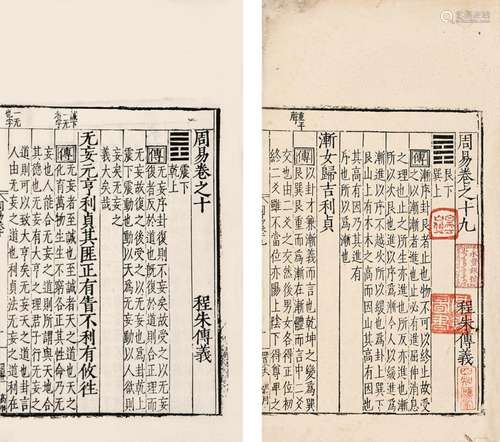 周易卷之十九
程朱傳義
艮下
巽上
傳漸序卦艮者止也物不可以終止故受
之以漸漸者進也止必有進屈伸消息
之理也止之所生亦進也所反亦進也
漸所以次艮也進以序為漸今人以緩
進為漸進以序不越次所以緩也為卦
艮山上有木木之高而因山其高有
也所以為漸也
漸女歸吉利貞
傳以卦才兼漸義而言也乾坤之變為巽
艮巽艮重而為漸在漸體而言中二爻
交也由二爻之交然後男女各得正位初
終二爻雖不當位亦陽上陰下得尊卑之
周易卷之十
程朱傳義
震下
乾上
傳无妄序卦復則不妄矣故受之以无妄
復者反於道也既復於道則合正理而
无妄故復之後受之以无妄也為卦乾上
震下震動也動以天為无妄動以人欲則
妄矣无妄之義大矣哉
无妄元亨利貞其匪正有眚不利有攸往
傳无妄者至誠也至誠者天之道也天之
化育萬物生生不窮各正其性命乃无
妄也人能合无妄之道則所謂與天地合
其德也无妄有大亨之理君子行无妄之
道則可以致大亨矣无妄天之道也卦言
人由无妄之道也利貞法无妄之道利在